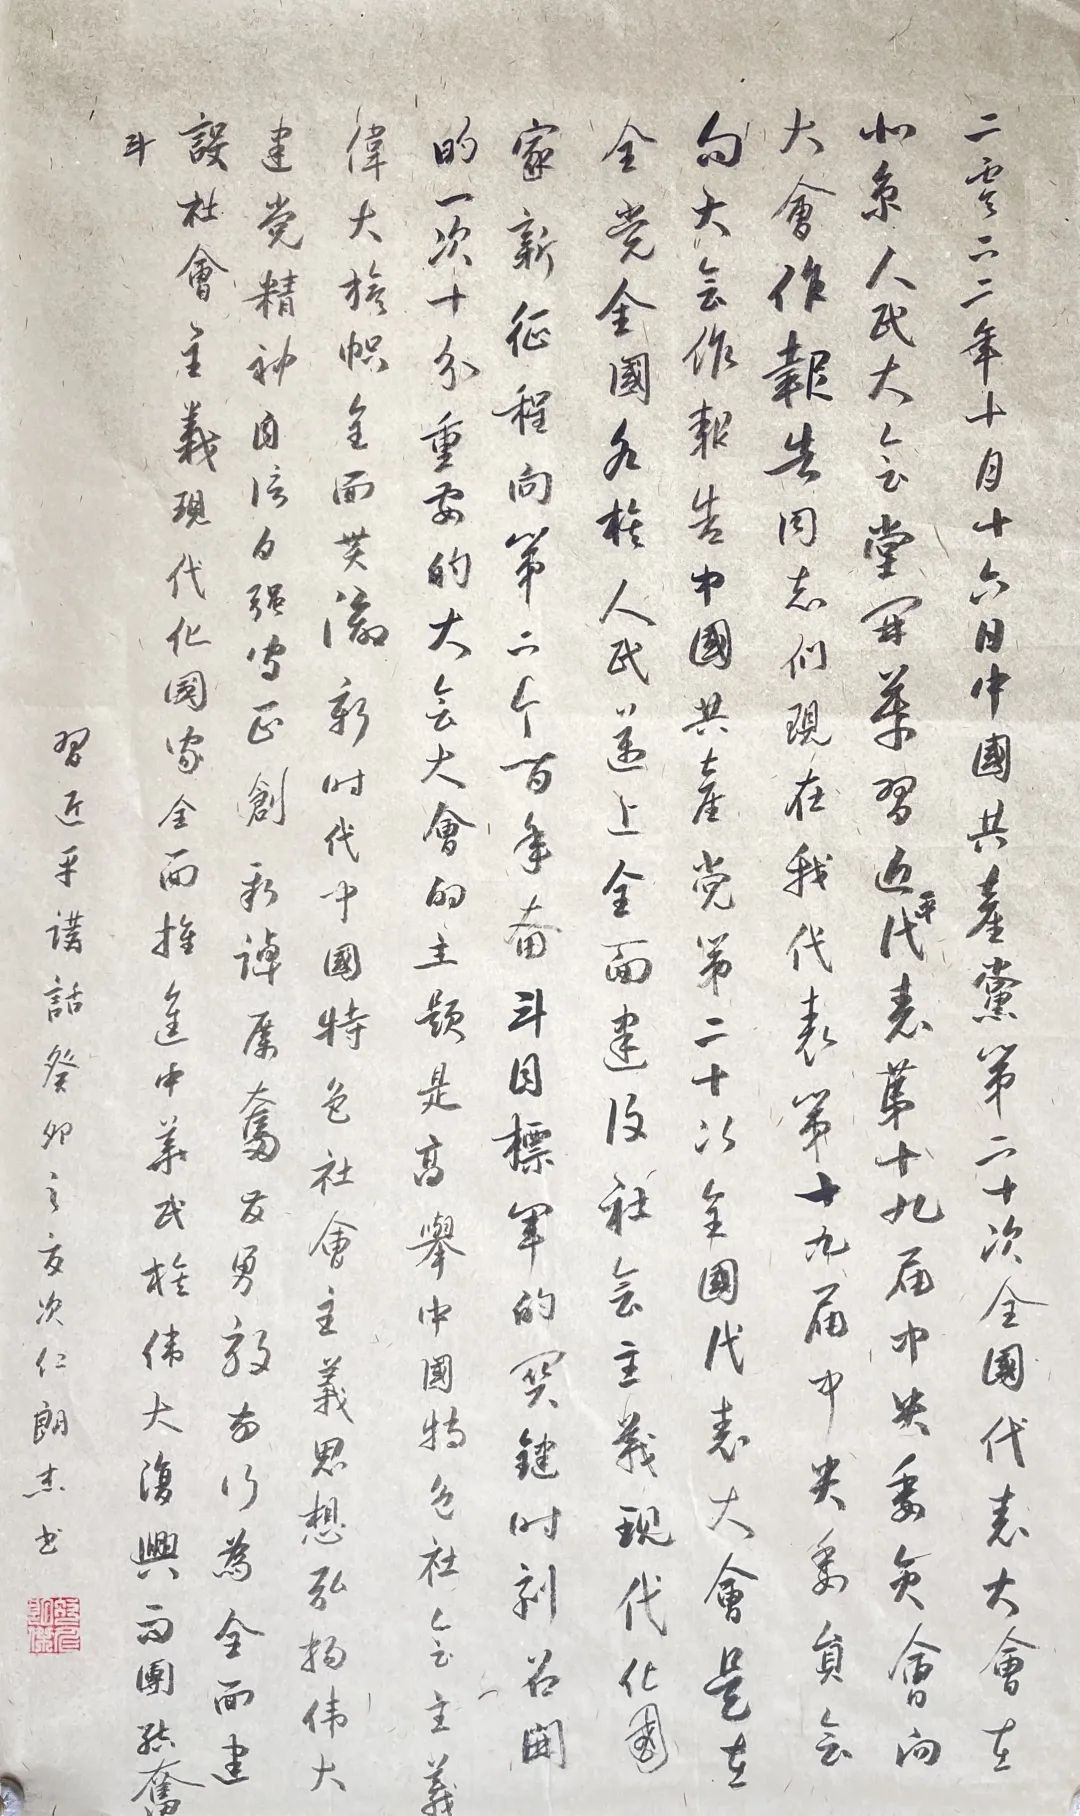 二零二二年十月十六日中國共產黨第二十次全國代表大會在
北京人民大会堂開幕習近平代表第十九届中央委員會向
大會作報告同志們現在我代表第十九届中央委員会
向大会作報告中國共產党第二十次全國代表大會是在
全党全國各族人民邁上全面建设社会主義現代化國
家新征程向第二个百年奋斗目標軍的関鍵时刻召開
的一次十分重要的大会大會的主题是高舉中國特色社会主義
偉大旗帜全面贯徹新时代中國特色社會主義思想弘扬伟大
建党精神自信自强守正創新踔厲奮發勇毅前行為全面建
設社會主義現代化國家全面推進中華民族伟大復興而團結奮
斗
習近平講話癸卯之夏次仁朗杰书